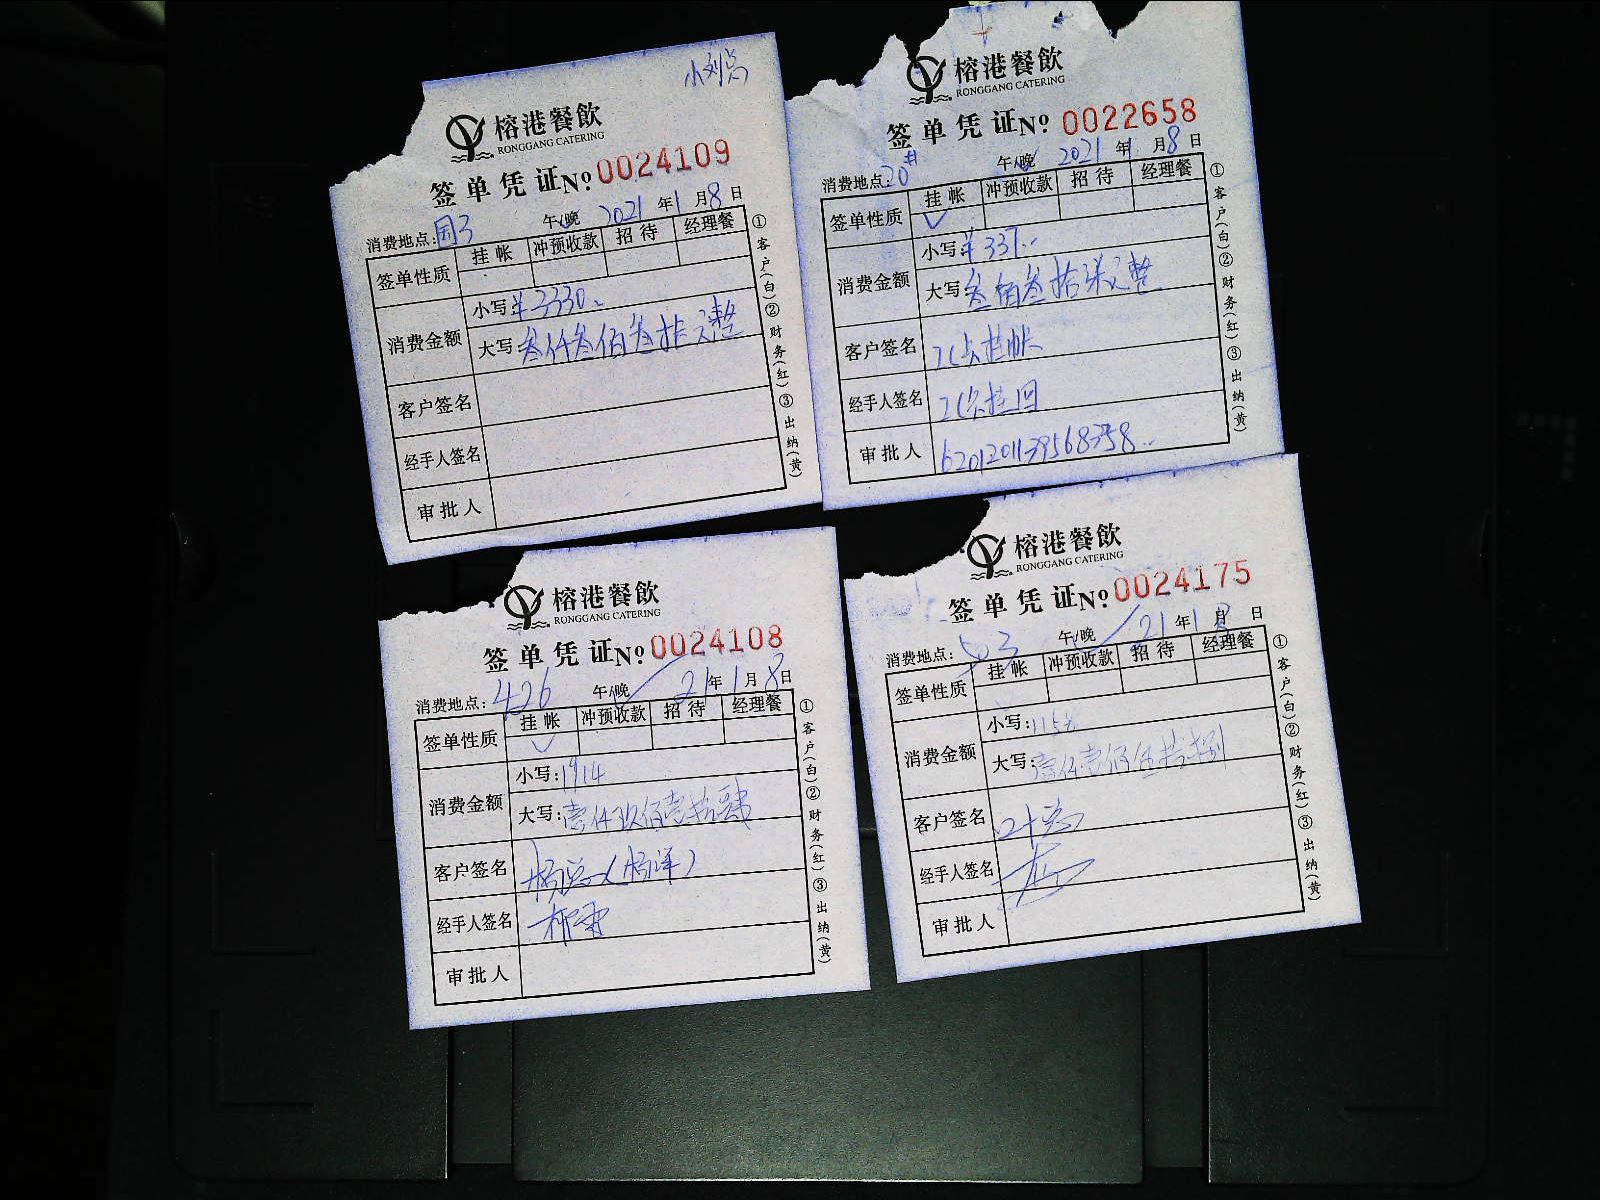 小刘总
榕港餐飲
RONGGANG CATERING
签单凭证№ 0024109
消费地点: 午/晚 2021年1月8日
签单性质 挂帐 冲预收款 招待 经理餐
消费金额 小写:¥3330
大写:叁仟叁佰叁拾元整
客户签名
经手人签名
审批人
①客户(白)②财务(红)③出纳(黄)
榕港餐飲
RONGGANG CATERING
签单凭证№ 0022658
消费地点:20# 午/晚 2021年1月8日
签单性质 挂帐 冲预收款 招待 经理餐
消费金额 小写:¥337
大写:叁佰叁拾柒元整
客户签名 挂帐
经手人签名
审批人
①客户(白)②财务(红)③出纳(黄)
榕港餐飲
RONGGANG CATERING
签单凭证№ 0024108
消费地点:426 午/晚 21年1月8日
签单性质 挂帐 冲预收款 招待 经理餐
消费金额 小写:1914
大写:壹仟玖佰壹拾肆
客户签名 杨总(杨洋)
经手人签名
审批人
①客户(白)②财务(红)③出纳(黄)
榕港餐飲
RONGGANG CATERING
签单凭证№ 0024175
消费地点: 午/晚 21年1月8日
签单性质 挂帐 冲预收款 招待 经理餐
消费金额 小写:
大写:壹仟壹佰伍拾
客户签名 叶总
经手人签名
审批人
①客户(白)②财务(红)③出纳(黄)